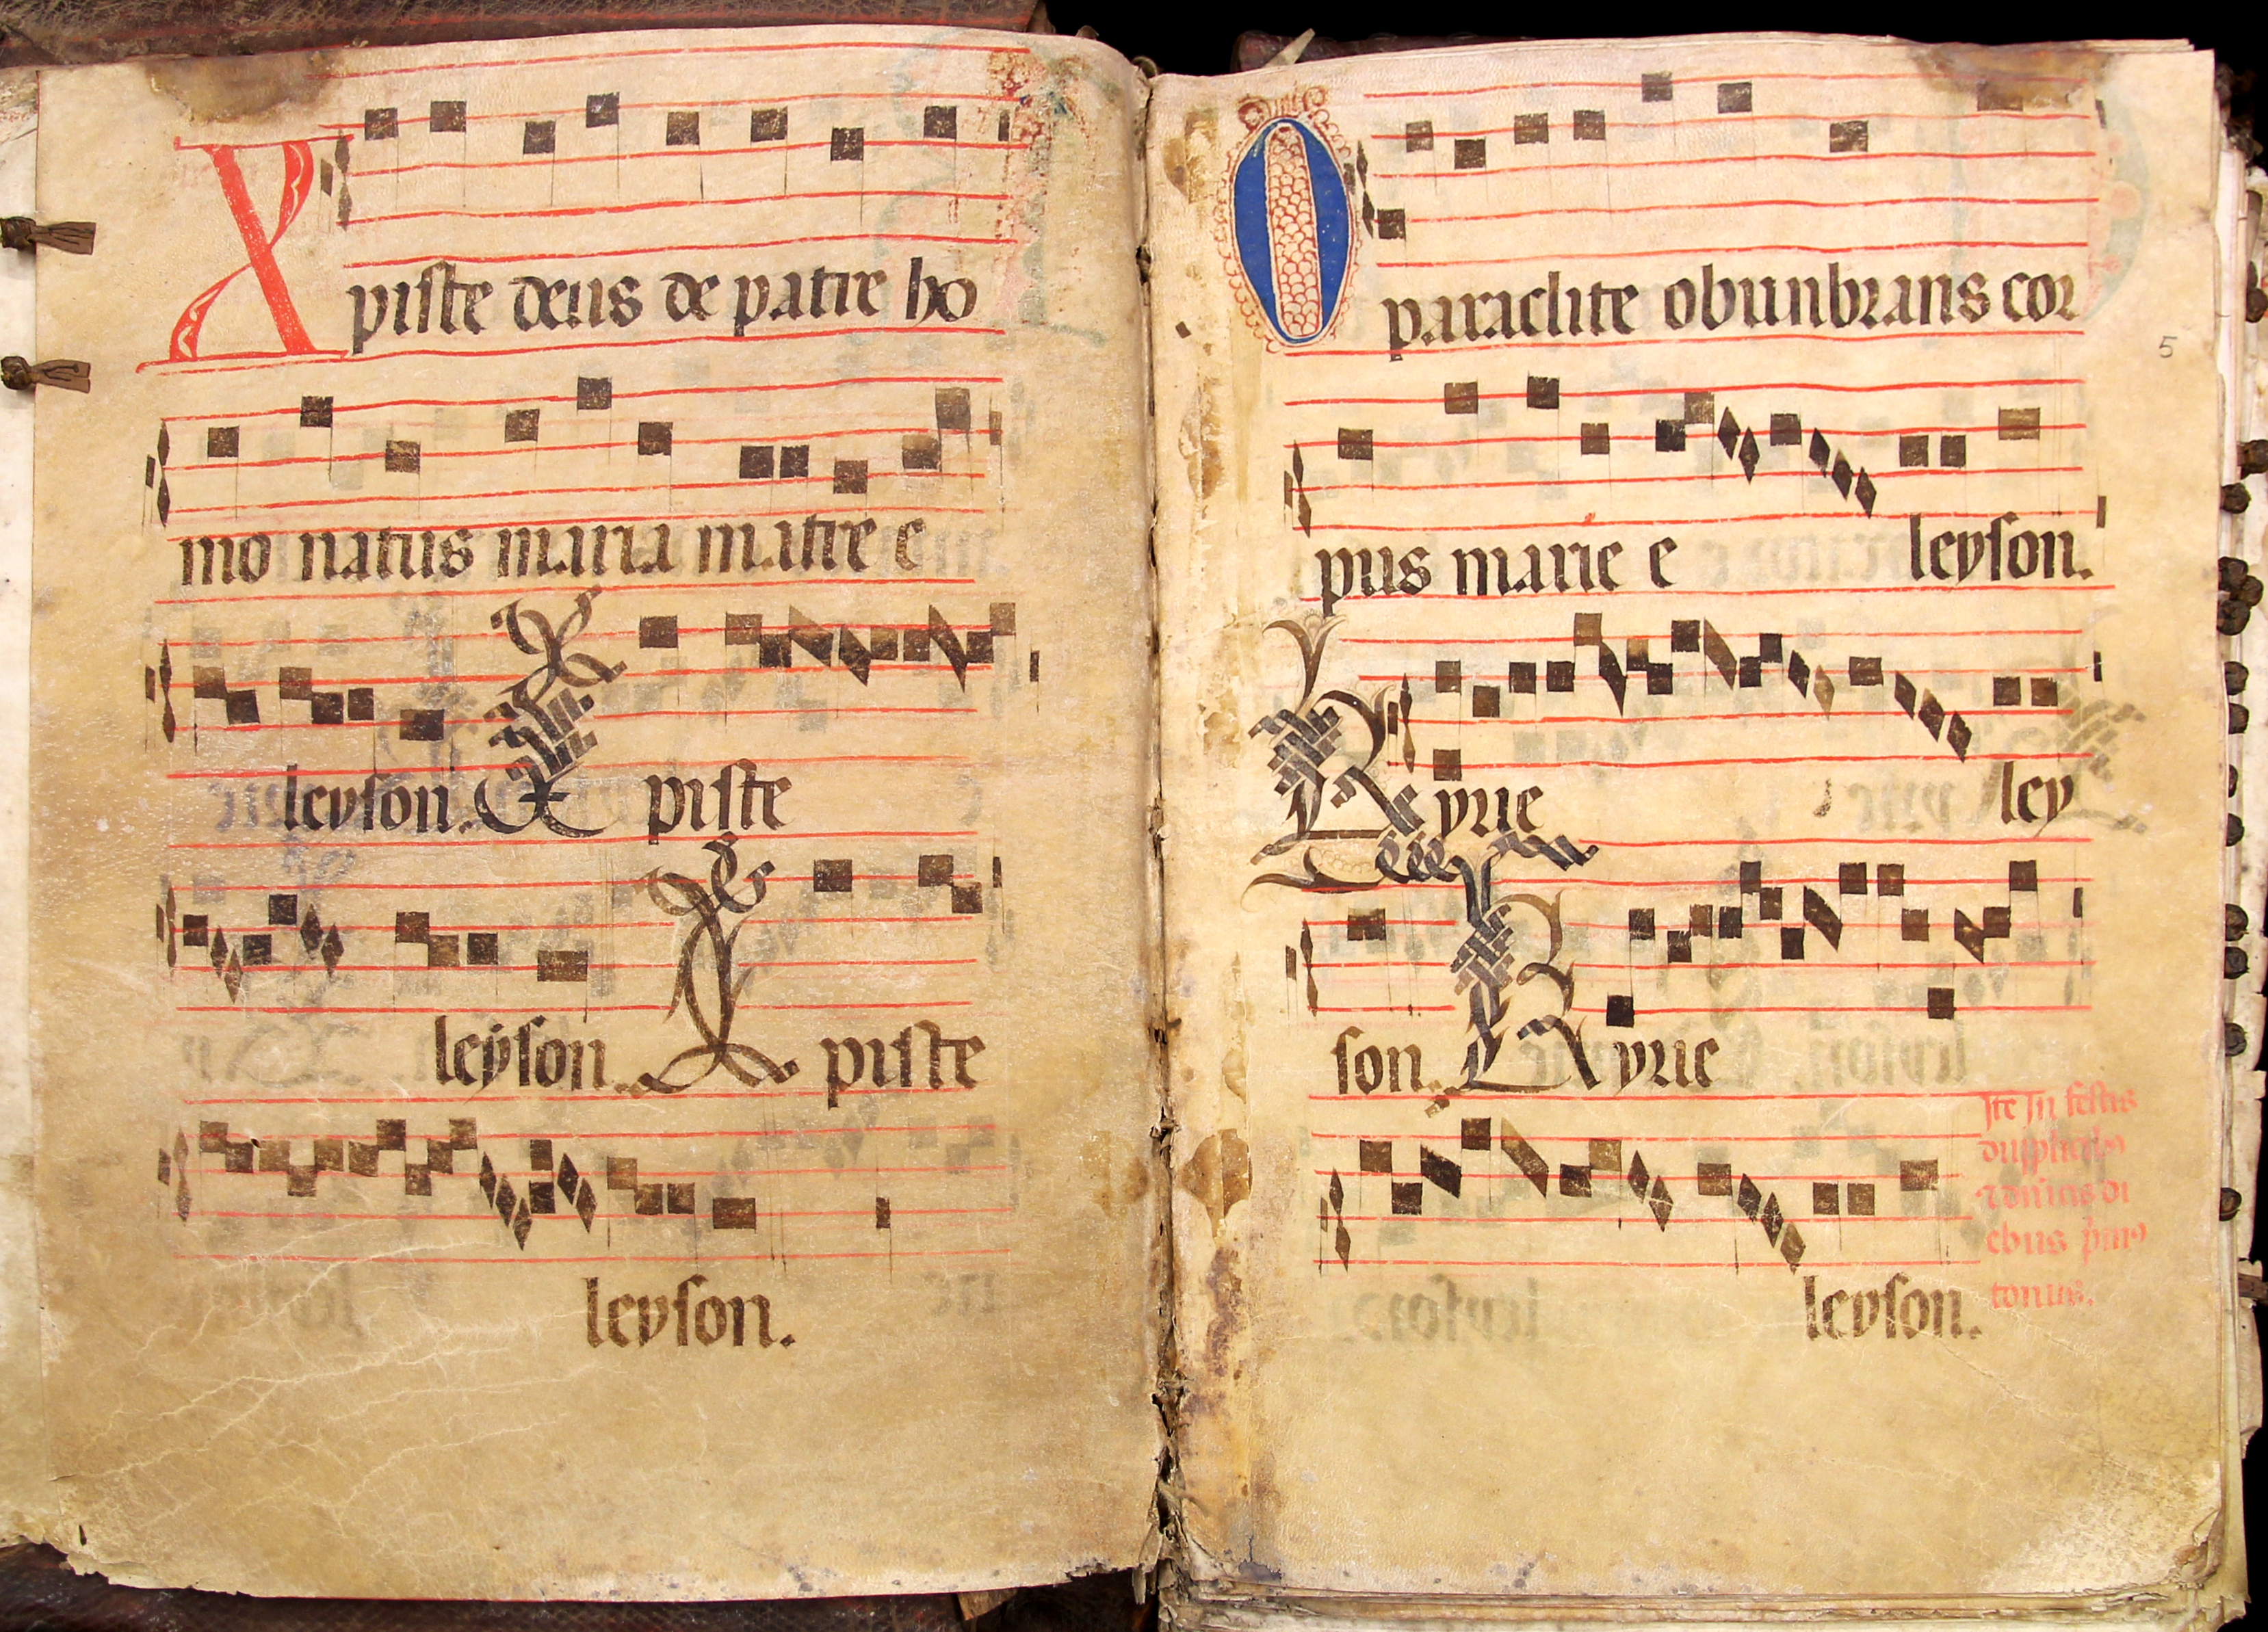 Xpiste deus de patre ho
mo natus maria matre e
leyson. Xpiste
leyson. Xpiste
leyson.
O paraclite obunbrans cor
5
pus marie e leyson.
Kyrie ley
son. Kyrie
Ite In festis
duplicibus
ebus
tonus.
leyson.